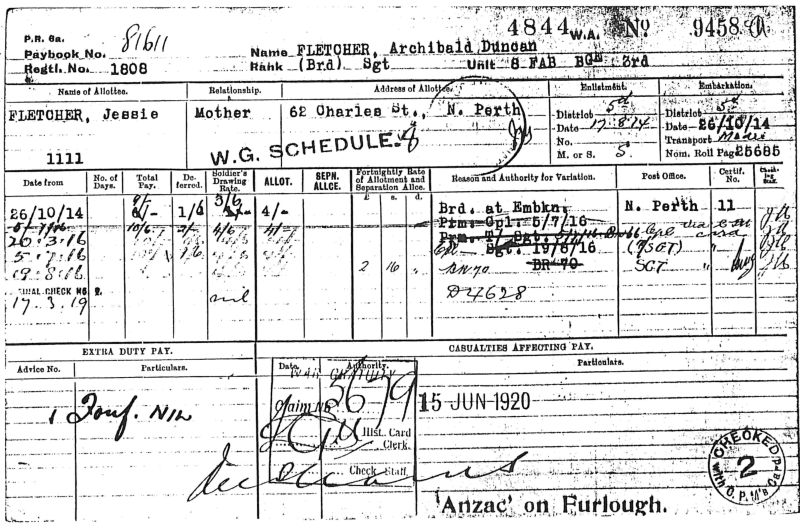 P.R. 6a.
4844 W.A. No 9458
Paybook No. 81611
Name FLETCHER, Archibald Duncan
Regtl. No. 1808
Rank (Brd) Sgt Unit 8 FAB BGE 3rd
Name of Allottee. Relationship. Address of Allottee. Enlistment. Embarkation.
FLETCHER, Jessie Mother 62 Charles St., N. Perth
District 5th District 5th
Date 17.8.14 Date 26/10/14
No. Transport
M. or S. S Nom. Roll Page 25685
1111 W.G. SCHEDULE.
Date from No. of Days. Total Pay. Deferred. Soldier's Drawing Rate. ALLOT. SEPN. ALLCE. Fortnightly Rate of Allotment and Separation Allce. Reason and Authority for Variation. Post Office. Certif. No. Checking Stmt.
£ s. d.
26/10/14 1/6 4/- Brd. at Embkn. N. Perth 11
Prm. Cpl. 5/7/16
20.3.16 Prm. T/ Sgt.
5.7.16 Sgt. 19/8/16 (T/SGT)
19.8.16 2 16 BR 70 SGT
FINAL CHECK No. 2.
17.3.19 nil D4628
EXTRA DUTY PAY. CASUALTIES AFFECTING PAY.
Advice No. Particulars. Date. Authority. Particulars.
WAR GRATUITY
Claim No 15 JUN 1920
1 Nil
Hist. Card Clerk.
Check Staff.
CHECKED with O.P.M's Card 2
'Anzac' on Furlough.